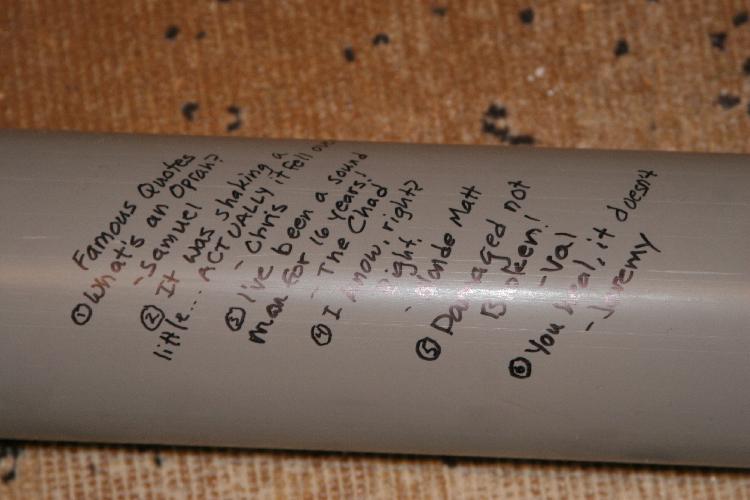 Famous Quotes
① What's an Oprah?
- Samuel
② It was shaking a
little... ACTUALLY it fell over
- Chris
③ I've been a sound
man for 16 years!
- The Chad
④ I know, right?
Right.
- Matt
⑤ Damaged not
Broken!
- Val
⑥ You heal, it doesn't
- Jeremy